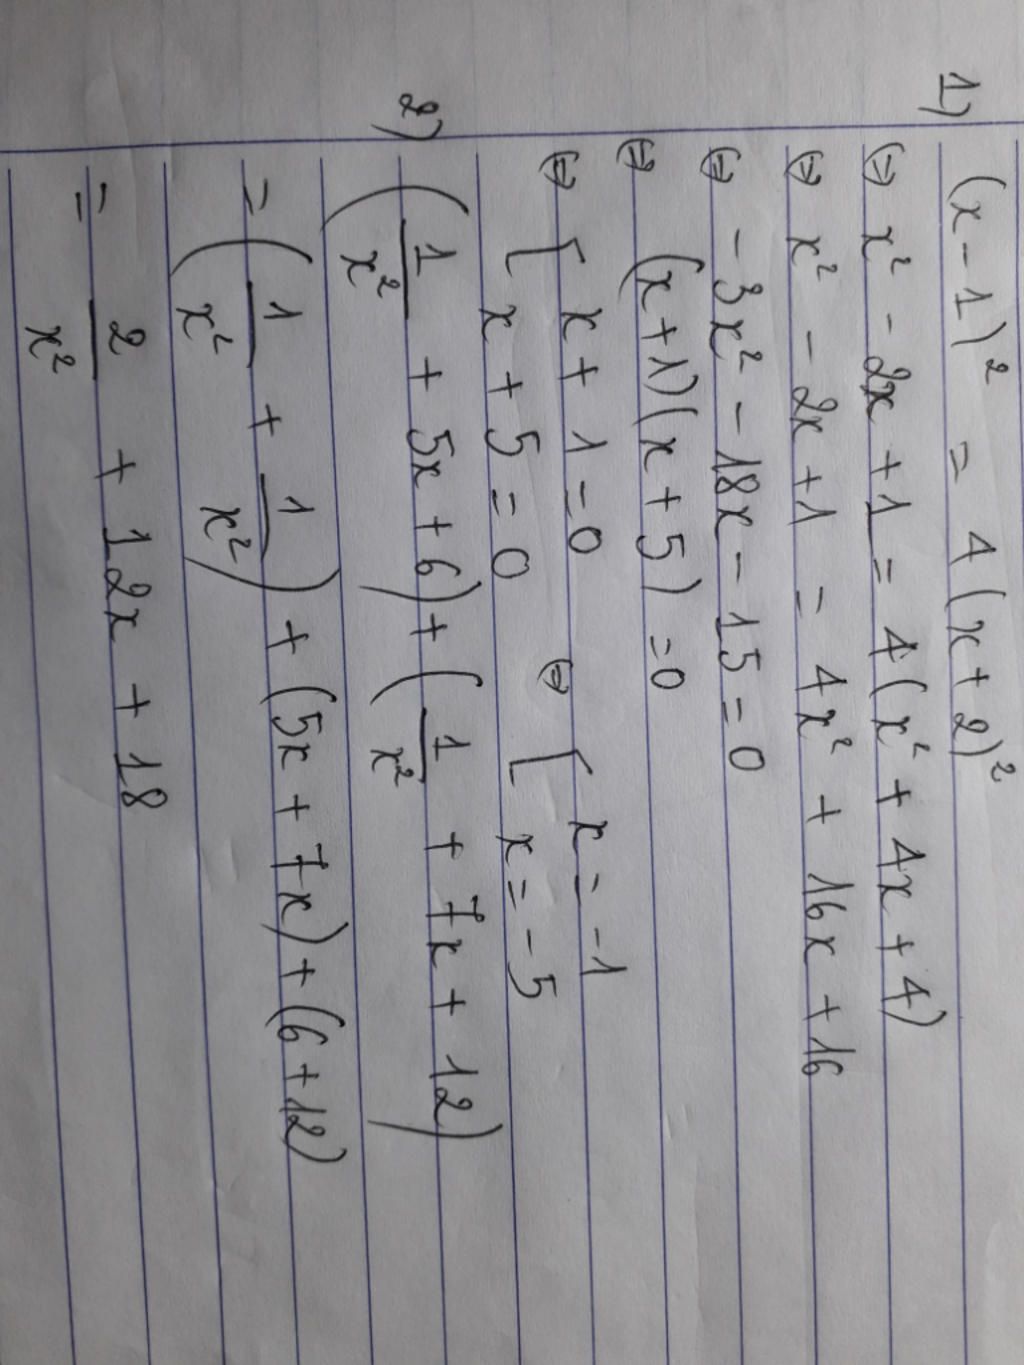 1) (x-1)² = 4(x+2)²
⇔ x² - 2x + 1 = 4(x² + 4x + 4)
⇔ x² - 2x + 1 = 4x² + 16x + 16
⇔ -3x² - 18x - 15 = 0
⇔ (x+1)(x+5) = 0
⇔ [ x + 1 = 0 ⇔ [ x = -1
x + 5 = 0 x = -5
2) (1/x² + 5x + 6) + (1/x² + 7x + 12)
= (1/x² + 1/x²) + (5x + 7x) + (6 + 12)
= 2/x² + 12x + 18